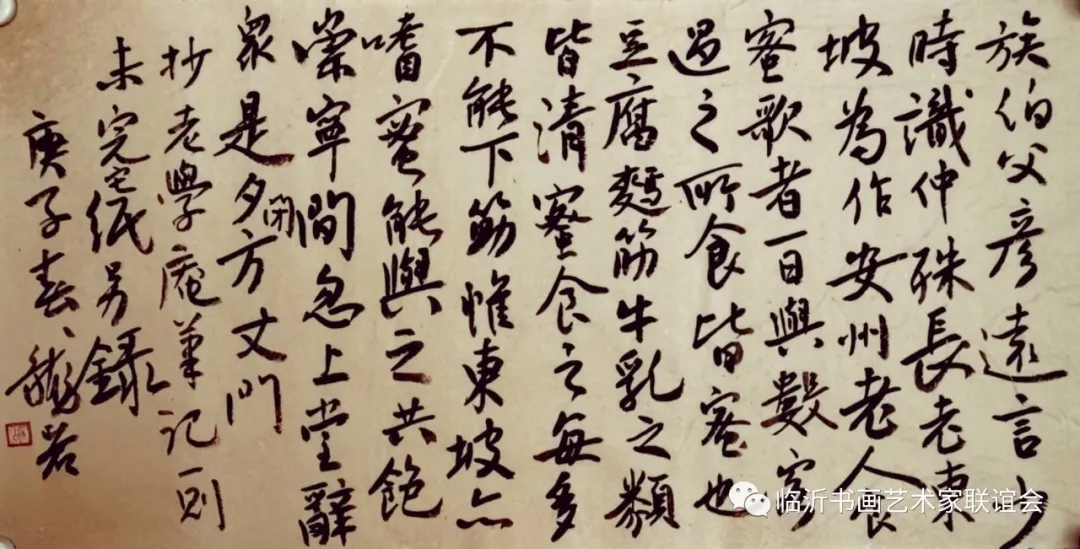 族伯父彥遠言少
時識仲殊長老東
坡為作安州老人食
蜜歌者一日與數客
過之所食皆蜜也
豆腐麵筋牛乳之類
皆漬蜜食之每多
不能下筯惟東坡亦
嗜蜜能與之共飽
崇寧間忽上堂辭
衆是夕閉方丈門
抄老學庵筆記一則
未完完紙另錄
庚子春
临沂书画艺术家联谊会